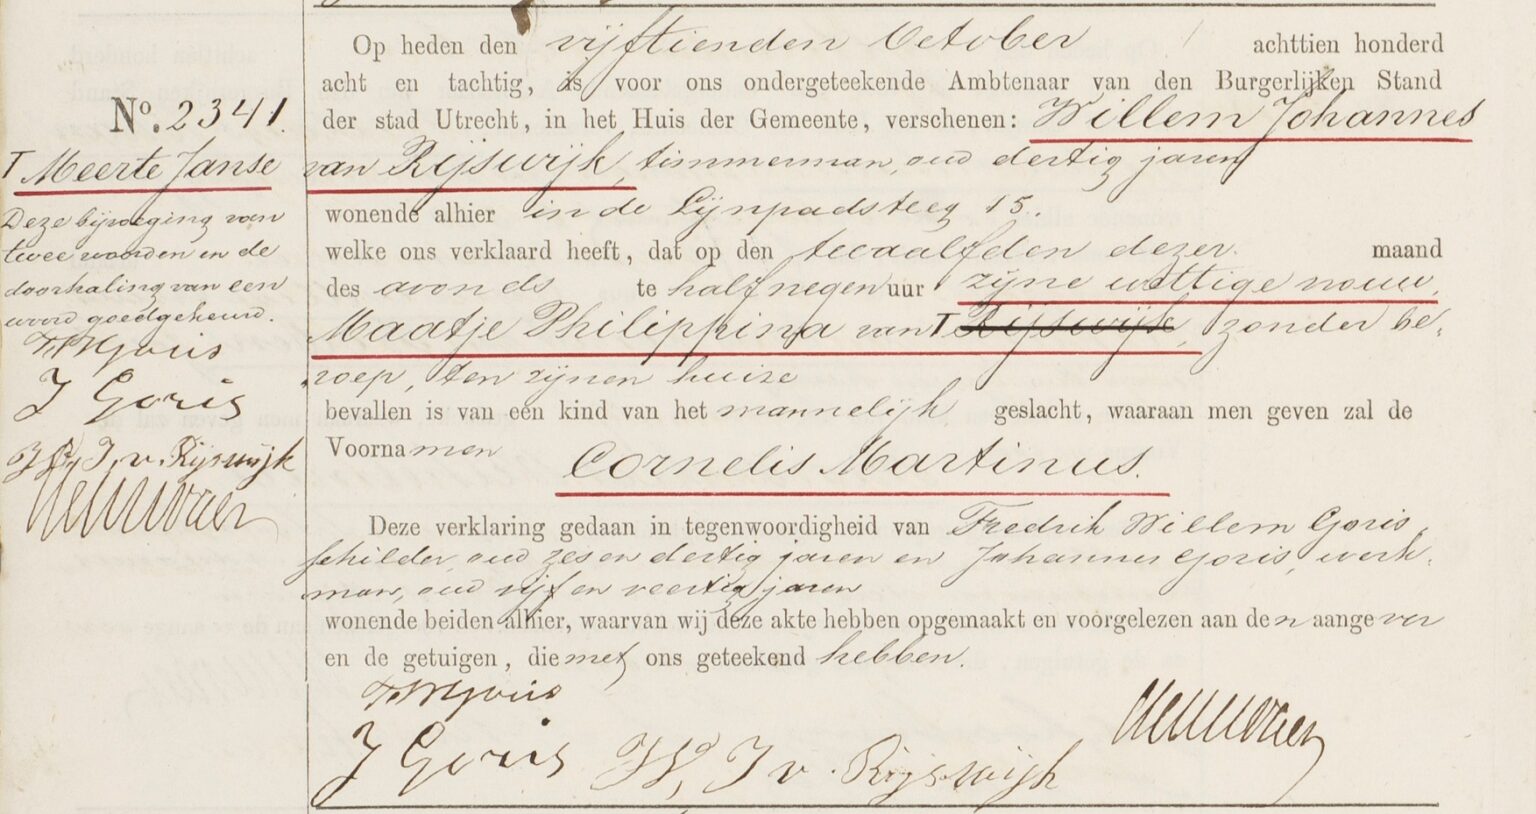 Op heden den vijftienden October achttien honderd
acht en tachtig, is voor ons ondergeteekende Ambtenaar van den Burgerlijken Stand
der stad Utrecht, in het Huis der Gemeente, verschenen: Willem Johannes
van Rijswijk, timmerman, oud dertig jaren
wonende alhier in de Lijnpadsteeg 15.
welke ons verklaard heeft, dat op den twaalfden dezer maand
des avonds te half negen uur zijne wettige vrouw,
Maatje Philippina van T Rijswijk, zonder be-
roep, ten zijnen huize
bevallen is van een kind van het mannelijk geslacht, waaraan men geven zal de
Voornamen Cornelis Martinus.
Deze verklaring gedaan in tegenwoordigheid van Fredrik Willem Goris,
schilder, oud zes en dertig jaren en Johannes Goris, werk-
man, oud vijf en veertig jaren
wonende beiden alhier, waarvan wij deze akte hebben opgemaakt en voorgelezen aan den aangever
en de getuigen, die met ons geteekend hebben.
FWGoris
J Goris W, J v. Rijswijk
No. 2341.
T Meerte Janse
Deze bijvoeging van
twee woorden en de
doorhaling van een
woord goedgekeurd.
FWGoris
J Goris
W, J, v. Rijswijk